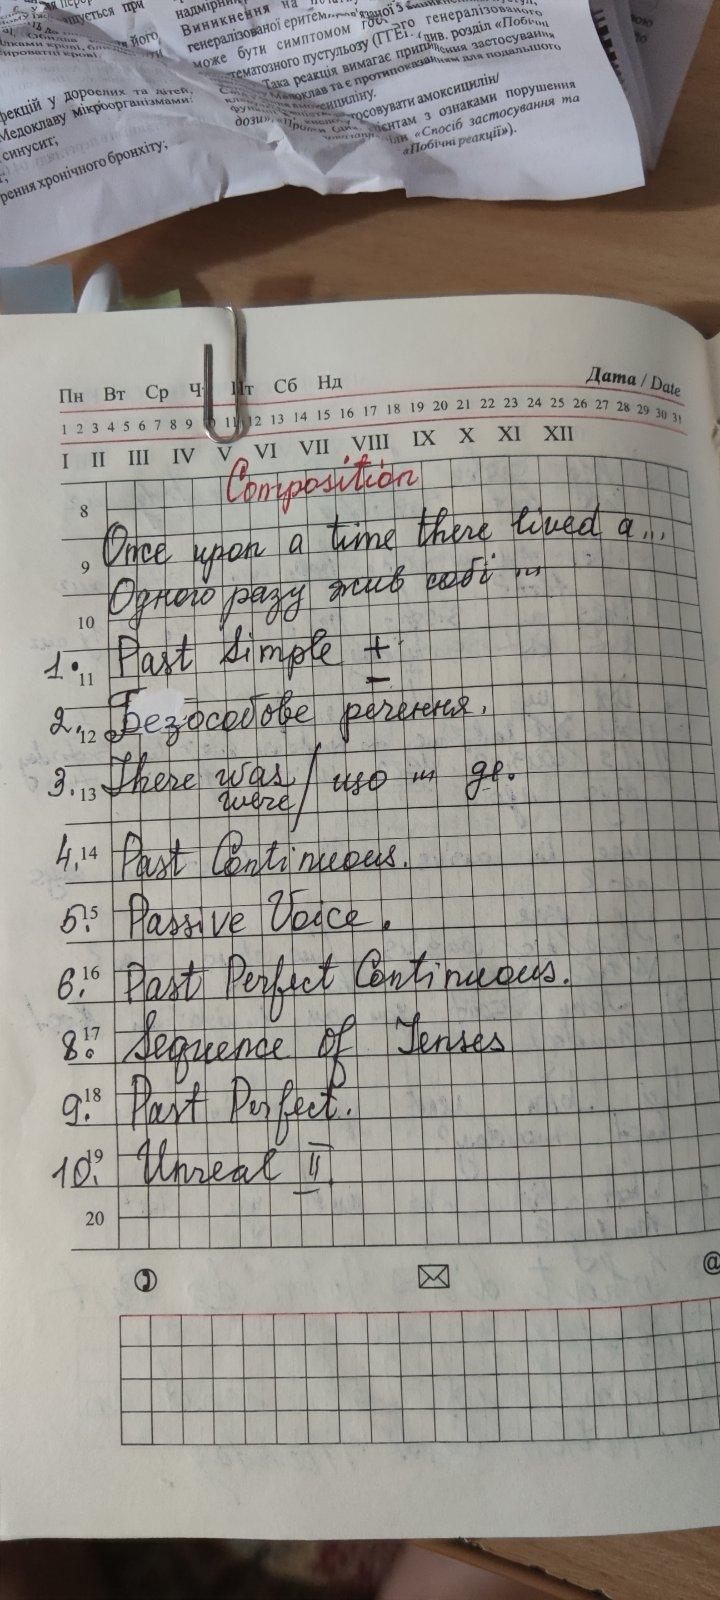 надмірни
Виникнення на
генералізованої
може бути симптомом гострого генералізованого
розділ «Побічні
Така реакція вимагає припинення застосування
Медоклав та є протипоказанням для подальшого
застосовувати амоксицилін/
пацієнтам з ознаками порушення
«Спосіб застосування та
«Побічні реакції»).
фекцій у дорослих та дітей,
Медоклаву мікроорганізмами:
синусит;
рення хронічного бронхіту;
Пн Вт Ср Чт Пт Сб Нд
Дата / Date
1 2 3 4 5 6 7 8 9 10 11 12 13 14 15 16 17 18 19 20 21 22 23 24 25 26 27 28 29 30 31
I II III IV V VI VII VIII IX X XI XII
Composition
8
9 Once upon a time there lived a...
Одного разу жив собі ...
10
1. Past Simple +
11 −
2. 12 Безособове речення.
3. 13 There was / що ... де.
were
4. 14 Past Continuous.
5. 15 Passive Voice.
6. 16 Past Perfect Continuous.
8. 17 Sequence of Tenses
9. 18 Past Perfect.
10. 19 Unreal II
20
@